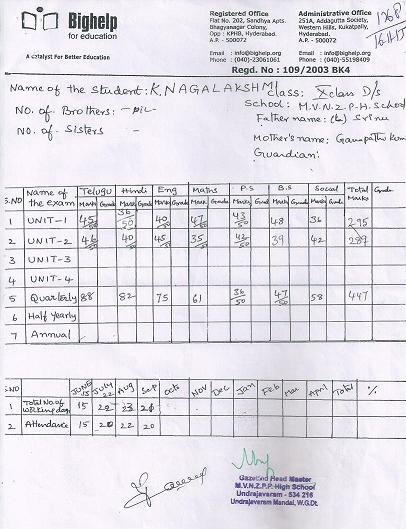 Bighelp
for education
A catalyst For Better Education
Registered Office
Flat No. 202, Sandhya Apts.
Bhagyanagar Colony,
Opp : KPHB, Hyderabad.
A.P. - 500072
Email : info@bighelp.org
Phone : (040)-23061061
Administrative Office
251A, Addagutta Society,
Western Hills, Kukatpally,
Hyderabad.
A.P. - 500072
Email : info@bighelp.org
Phone : (040)-55198409
1268
Regd. No : 109/2003 BK4
Name of the student: K. NAGALAKSHMI class: X class D/s
School: M.V.N.Z.P.H.School
No. of Brothers: - nil
Father name: (L) Srinu
No. of Sisters -
Mother's name: Ganapathi Kum
Guardian:
S.NO Name of the exam Telugu Hindi Eng Maths P.S B.S Social Total Marks Grade
Marks Grade Marks Grade Marks Grade Marks Grade Marks Grad Marks Grade Marks Grade
1 UNIT-1 45/50 36/50 40/50 47/50 43/50 48 36 295
2 UNIT-2 46/50 40/50 45/50 35/50 42/50 39 42 289
3 UNIT-3
4 UNIT-4
5 Quarterly 88 82 75 61 36/50 47/50 58 447
6 Half Yearly
7 Annual
S.NO JUNE JULY Aug Sep Octs Nov Dec Jan Feb Mar April Total %
1 Total No. of working days 15 22 23 20
2 Attendance 15 20 22 20
Gazetted Head Master
M.V.N.Z.P.P. High School
Undrajavaram - 534 216
Undrajavaram Mandal, W.G.Dt.